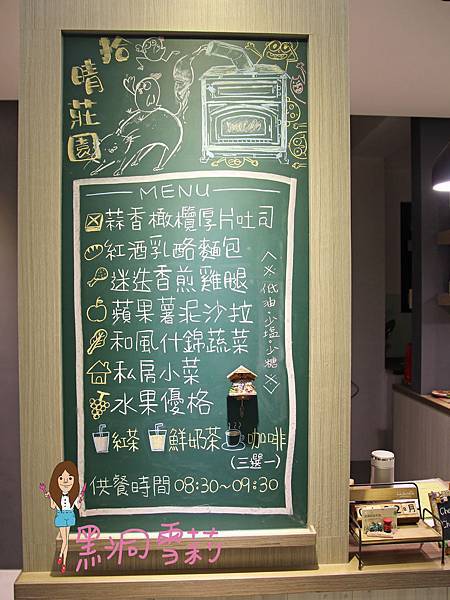 拾晴莊園
MENU
蒜香橄欖厚片吐司
紅酒乳酪麵包
迷迭香煎雞腿
蘋果薯泥沙拉
和風什錦蔬菜
私房小菜
水果優格
紅茶 鮮奶茶 咖啡
(三選一)
供餐時間 08:30~09:30
低油·少塩·少糖
黑洞雪莉